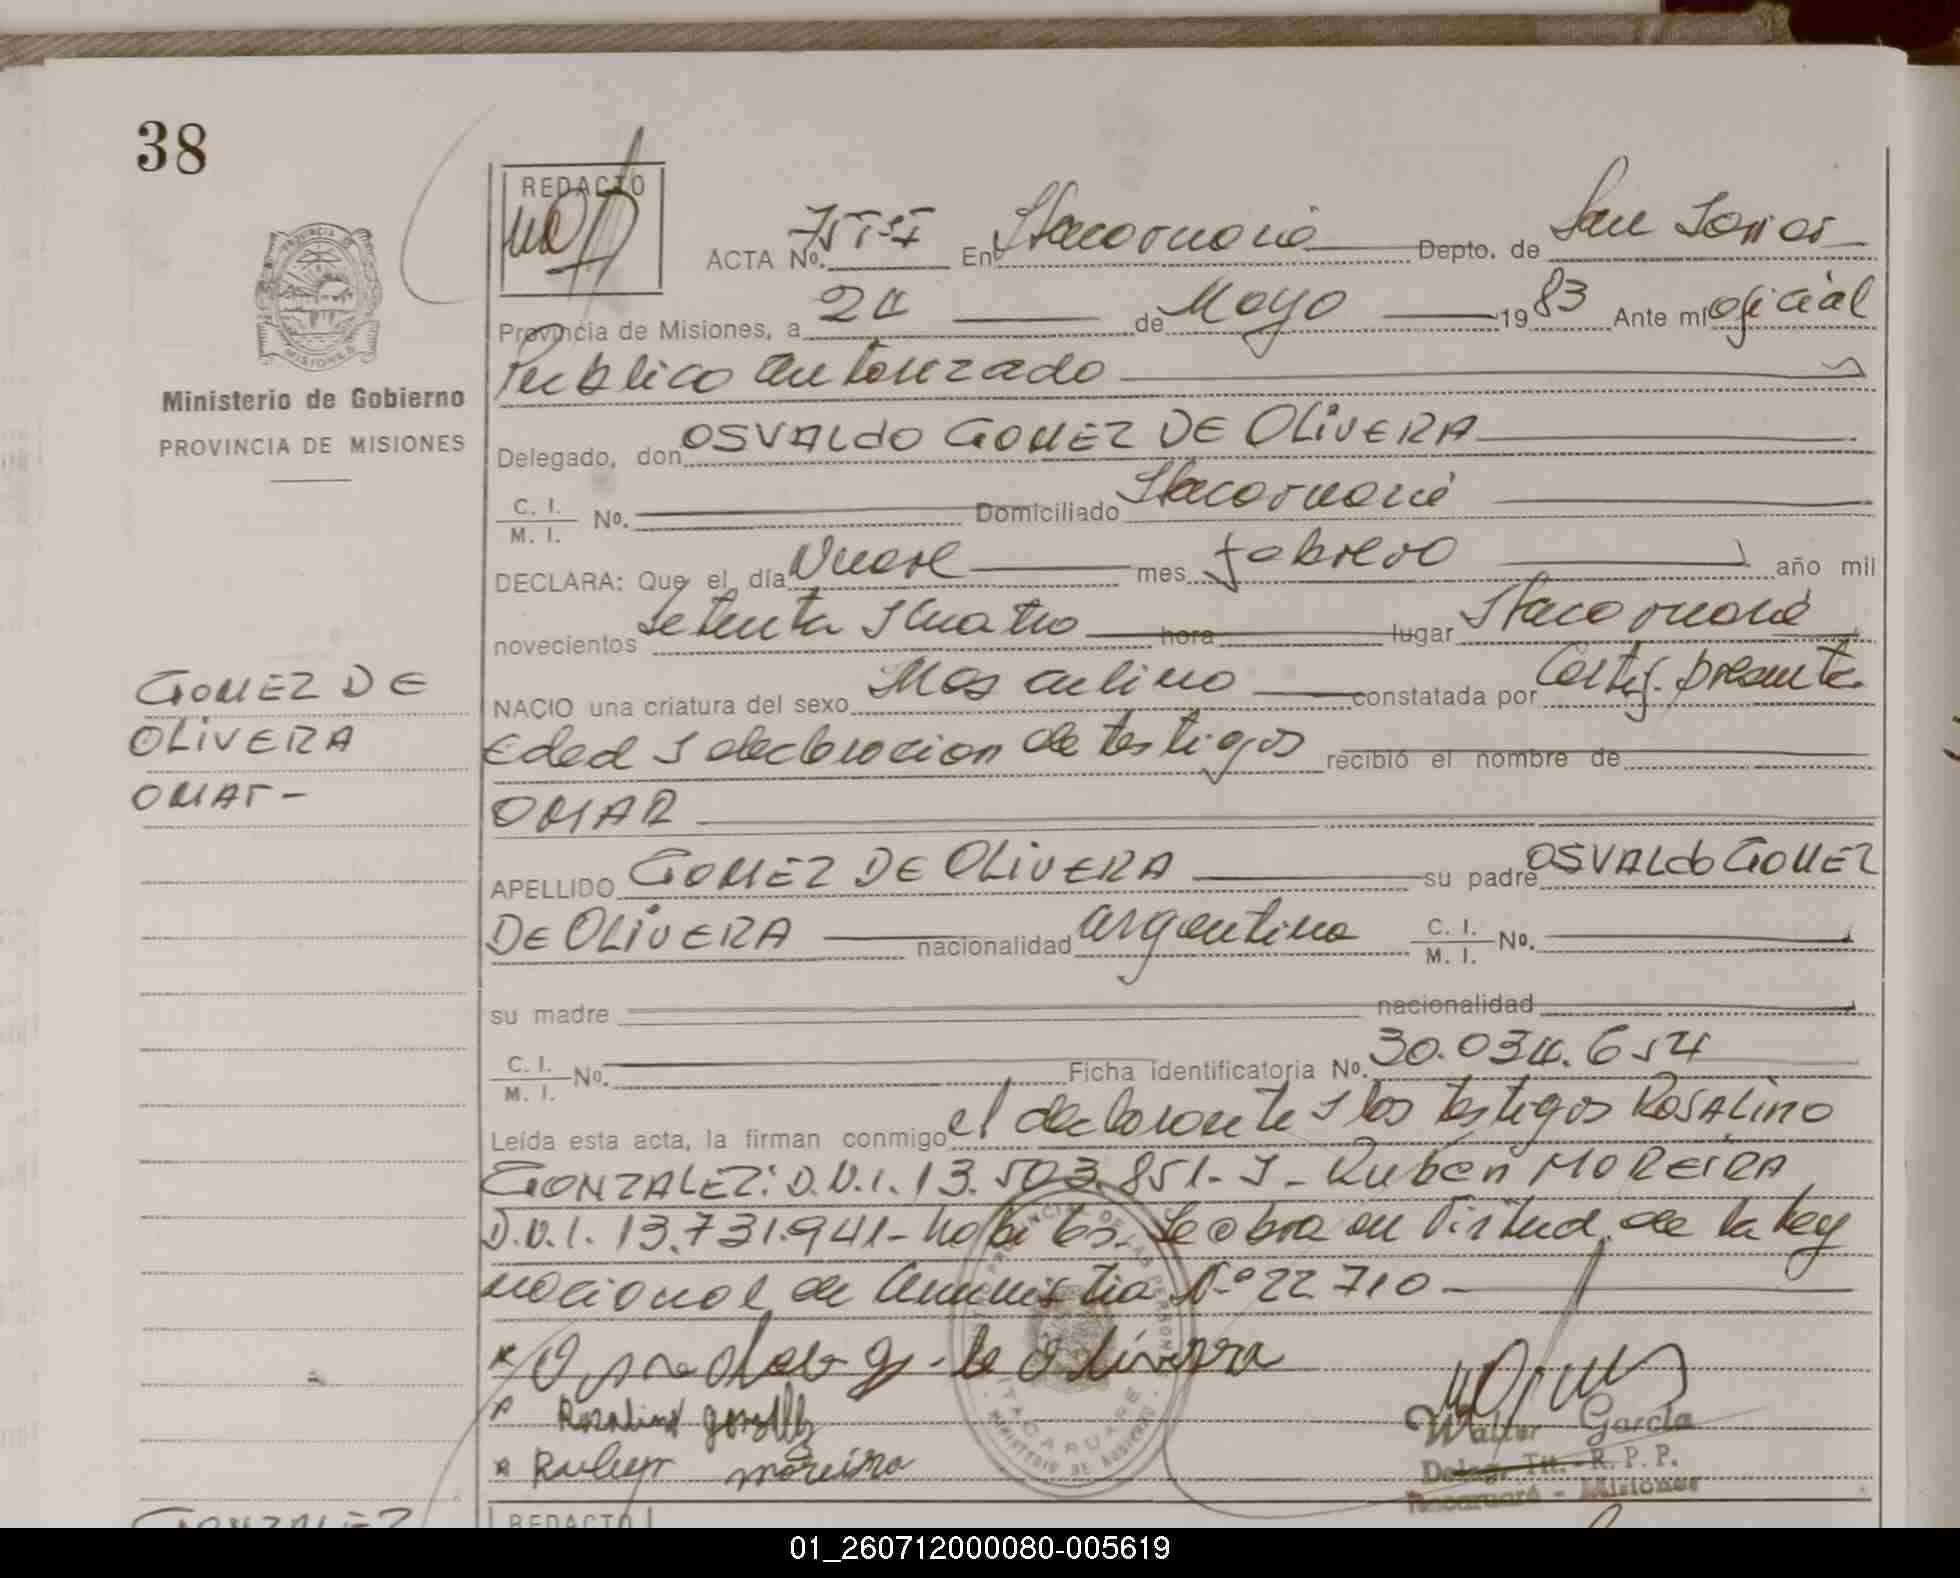 38
REDACTO
ACTA Nº. En Itacaruaré Depto. de San Javier
Provincia de Misiones, a 24 de Mayo 1983 Ante mí oficial
Publico autorizado
Ministerio de Gobierno
PROVINCIA DE MISIONES
Delegado, don OSVALDO GOMEZ DE OLIVERA
C. I.
M. I. Nº. Domiciliado Itacaruaré
DECLARA: Que el día Nueve mes febrero año mil
novecientos setenta y cuatro hora lugar Itacaruaré
NACIO una criatura del sexo Masculino constatada por Certif. presunta
Edad y declaracion de testigos recibió el nombre de
GOMEZ DE
OLIVERA
OMAr-
OMAR
APELLIDO GOMEZ DE OLIVERA su padre OSVALDO GOMEZ
DE OLIVERA nacionalidad argentino C. I.
M. I. Nº.
su madre nacionalidad
C. I.
M. I. Nº. Ficha identificatoria Nº. 30.034.654
Leída esta acta, la firman conmigo el declarante y los testigos ROSALINO
GONZALEZ: D.N.I. 13.503.851- y - Rubén MOREIRA
D.N.I. 13.731.941- habiles. Se labra en Virtud de la ley
nacional de Amnistia Nº 22710
Rosalino
moreira
PROVINCIA DE MISIONES
ITACARUARE
Walter García
Deleg. Tit. - R. P. P.
Itacaruaré - Misiones
GONZALEZ
REDACTO
01_260712000080-005619